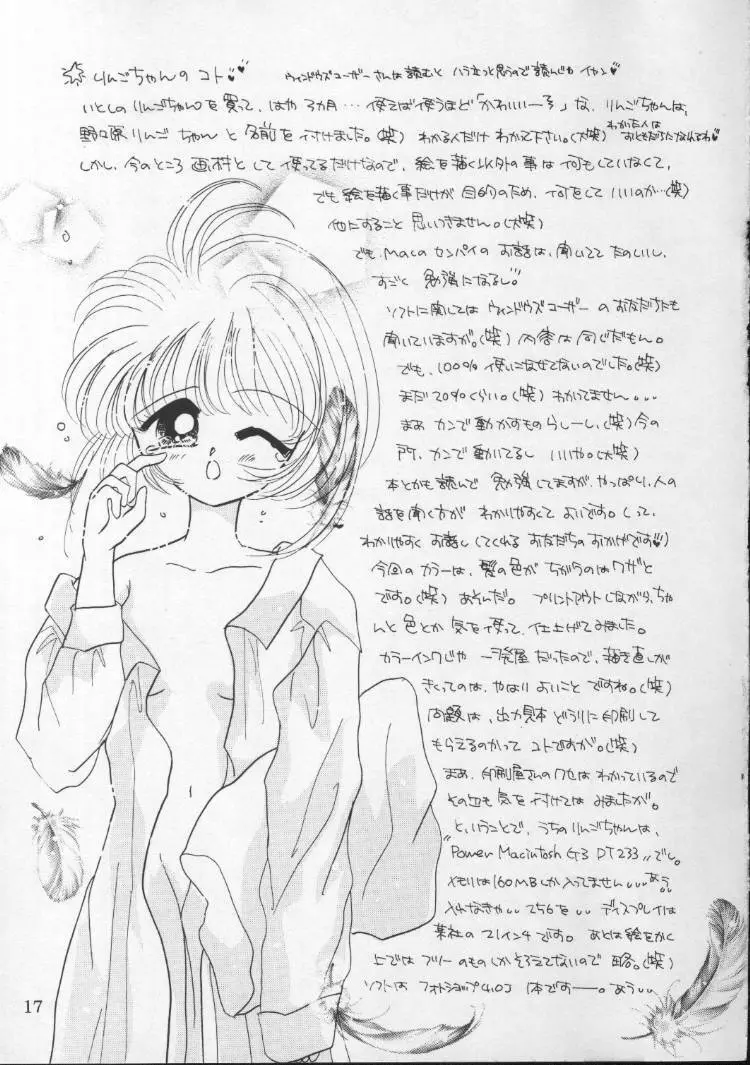 りんごちゃんの コト
ウィンドウズユーザーさんは読むと ハラ立つと思うので読んじゃ イヤン
いとしの りんごちゃんを 買って、はや 3カ月… 使えば使うほど「かわいいーっ」な、りんごちゃんは、
野々原りんご ちゃん と 名前 を 付けました。(笑) わかる人だけ わかって下さい。(大笑) わかった人は おともだちになれてね
しかし、今のところ 画材 として 使ってるだけなので、絵を描く以外の 事は 何もしていなくて、
でも 絵を描く事だけが 目的のため、何をして いいのか…(笑)
他にすること 思いつきません。(大笑)
でも、Macの センパイの お話は、聞いてて たのしいし、
すごく 勉強になるし。
ソフトに関しては ウィンドウズユーザー の お友だちにも
聞いていますが。(笑) 内容は 同じだもん。
でも、100% 使いこなせてないのでした。(笑)
まだ 20%くらい。(笑) わかってません…
まぁ カンで 動かすもの らしーし、(笑) 今の
所、カンで動いてるし いいや。(大笑)
本とかも 読んで 勉強してますが、やっぱり、人の
話を 聞く方が わかりやすくて よいです。(って、
わかりやすく お話ししてくれる お友だちの おかげです)
今回の カラーは、髪の色が ちがうのは ワザと
です。(笑) あそんだ。 プリントアウトしながら、ちゃ
んと 色とか 気を 使って、仕上げてみました。
カラーインクじゃ 一発屋 だったので、描き直しが
きくってのは、やはり よいこと ですね。(笑)
問題は、出力見本 どうりに 印刷して
もらえるのかって コトですが。(笑)
まぁ、印刷屋さんの クセは わかっているので
その辺も 気を 付けては みましたが。
と、いうことで、うちの りんごちゃんは、
"Power Macintosh G3 DT233"でし。
メモリは160MBしか入ってません… あう。
入れなきゃ… 256を… ディスプレイは
某社の 21インチです。 あとは 絵をかく
上では フツーの ものしか そろえてないので 略。(笑)
ソフトは フォトショップ4.0J 1本です――。あう…
17